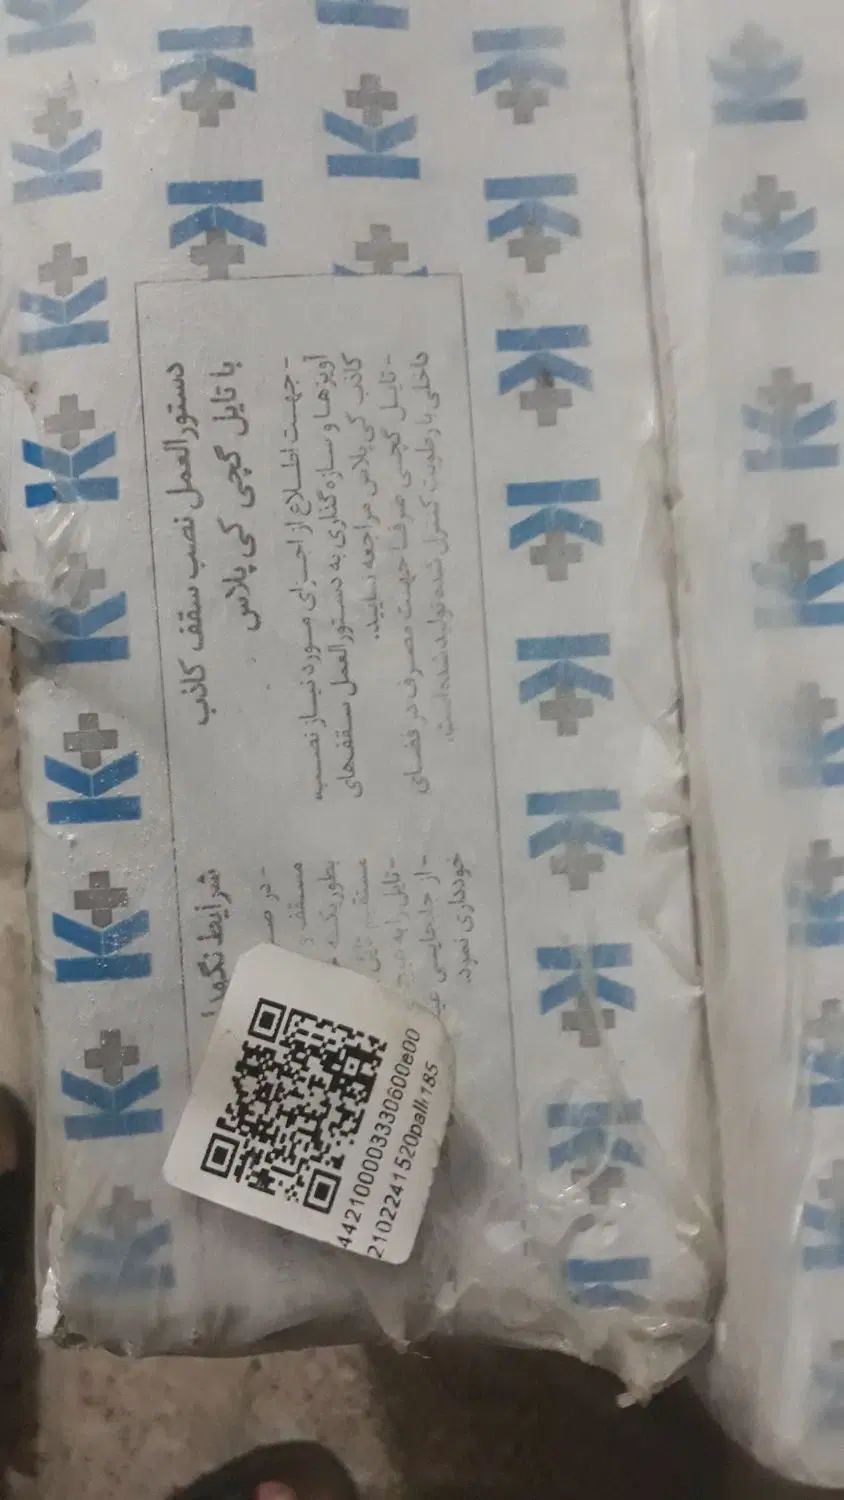 دستورالعمل نصب سقف کاذب
با تایل گچی کی پلاس
- جهت اطلاع از اجزای مورد نیاز نصب
آویزها و سازه گذاری به دستورالعمل سقفهای
کاذب کی پلاس مراجعه نمایید.
- تایل گچی صرفا جهت مصرف در فضای
داخلی با رطوبت کنترل شده تولید شده است.
شرایط نگهدا
- در صـ
مسقف و
بطوریکه
مستقیم تایل
- تایل را به هیچ
- از جابجایی
خودداری نمود.
442100003330600e00
2102241520pall؛185
K+